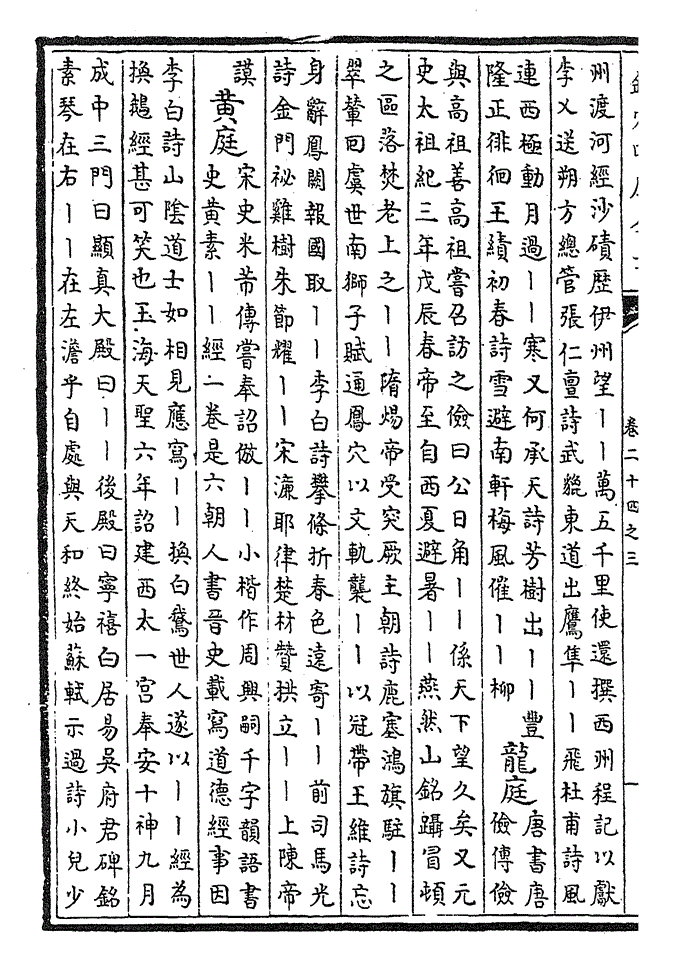 州渡河經沙磧歷伊州望丨丨萬五千里使還撰西州程記以獻
李乂送朔方總管張仁亶詩武貔東道出鷹隼丨丨飛杜甫詩風
連西極動月過丨丨寒又何承天詩芳樹出丨丨豐
隆正徘徊王績初春詩雪避南軒梅風催丨丨柳
龍庭
唐書唐
儉傳儉
與高祖善高祖嘗召訪之儉曰公日角丨丨係天下望久矣又元
史太祖紀三年戊辰春帝至自西夏避暑丨丨燕然山銘躡冒頓
之區落焚老上之丨丨隋煬帝受突厥主朝詩鹿塞鴻旗駐丨丨
翠輦回虞世南獅子賦通鳳穴以文軌襲丨丨以冠帶王維詩忘
身辭鳳闕報國取丨丨李白詩攀條折春色遠寄丨丨前司馬光
詩金門祕雞樹朱節耀丨丨宋濂耶律楚材贊拱立丨丨上陳帝
謨
黃庭
宋史米芾傳嘗奉詔倣丨丨小楷作周興嗣千字韻語書
史黃素丨丨經一卷是六朝人書晉史載寫道德經事因
李白詩山陰道士如相見應寫丨丨換白鵞世人遂以丨丨經為
換鵞經甚可笑也玉海天聖六年詔建西太一宮奉安十神九月
成中三門曰顯真大殿曰丨丨後殿曰寧禧白居易吳府君碑銘
素琴在右丨丨在左澹乎自處與天和終始蘇軾示過詩小兒少
卷二十四之三